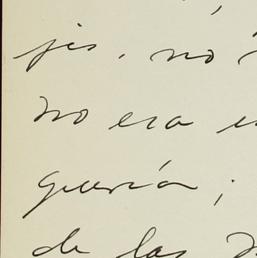 jes, no
no era
querían;
de las